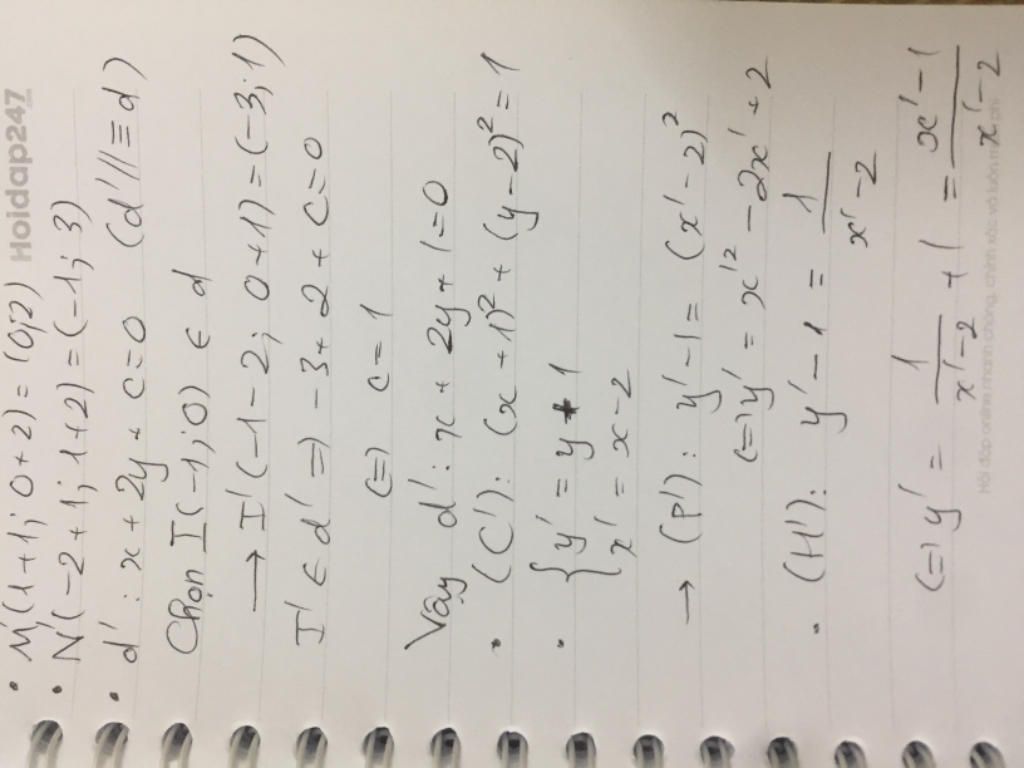 Hoidap247
.com
• M'(1+1; 0+2) = (0;2)
• N'(-2+1; 1+2) = (-1; 3)
• d' : x + 2y + c = 0 (d' // ≡ d)
Chọn I(-1; 0) ∈ d
→ I'(-1-2; 0+1) = (-3; 1)
I' ∈ d' => -3 + 2 + c = 0
(=) c = 1
Vậy d' : x + 2y + 1 = 0
• (C') : (x+1)² + (y-2)² = 1
• { y' = y + 1
x' = x - 2
→ (P') : y' - 1 = (x' - 2)²
(=) y' = x'² - 2x' + 2
• (H') : y' - 1 = 1/(x' - 2)
(=) y' = 1/(x' - 2) + 1 = (x' - 1)/(x' - 2)
Hỏi đáp online nhanh chóng, chính xác và luôn miễn phí